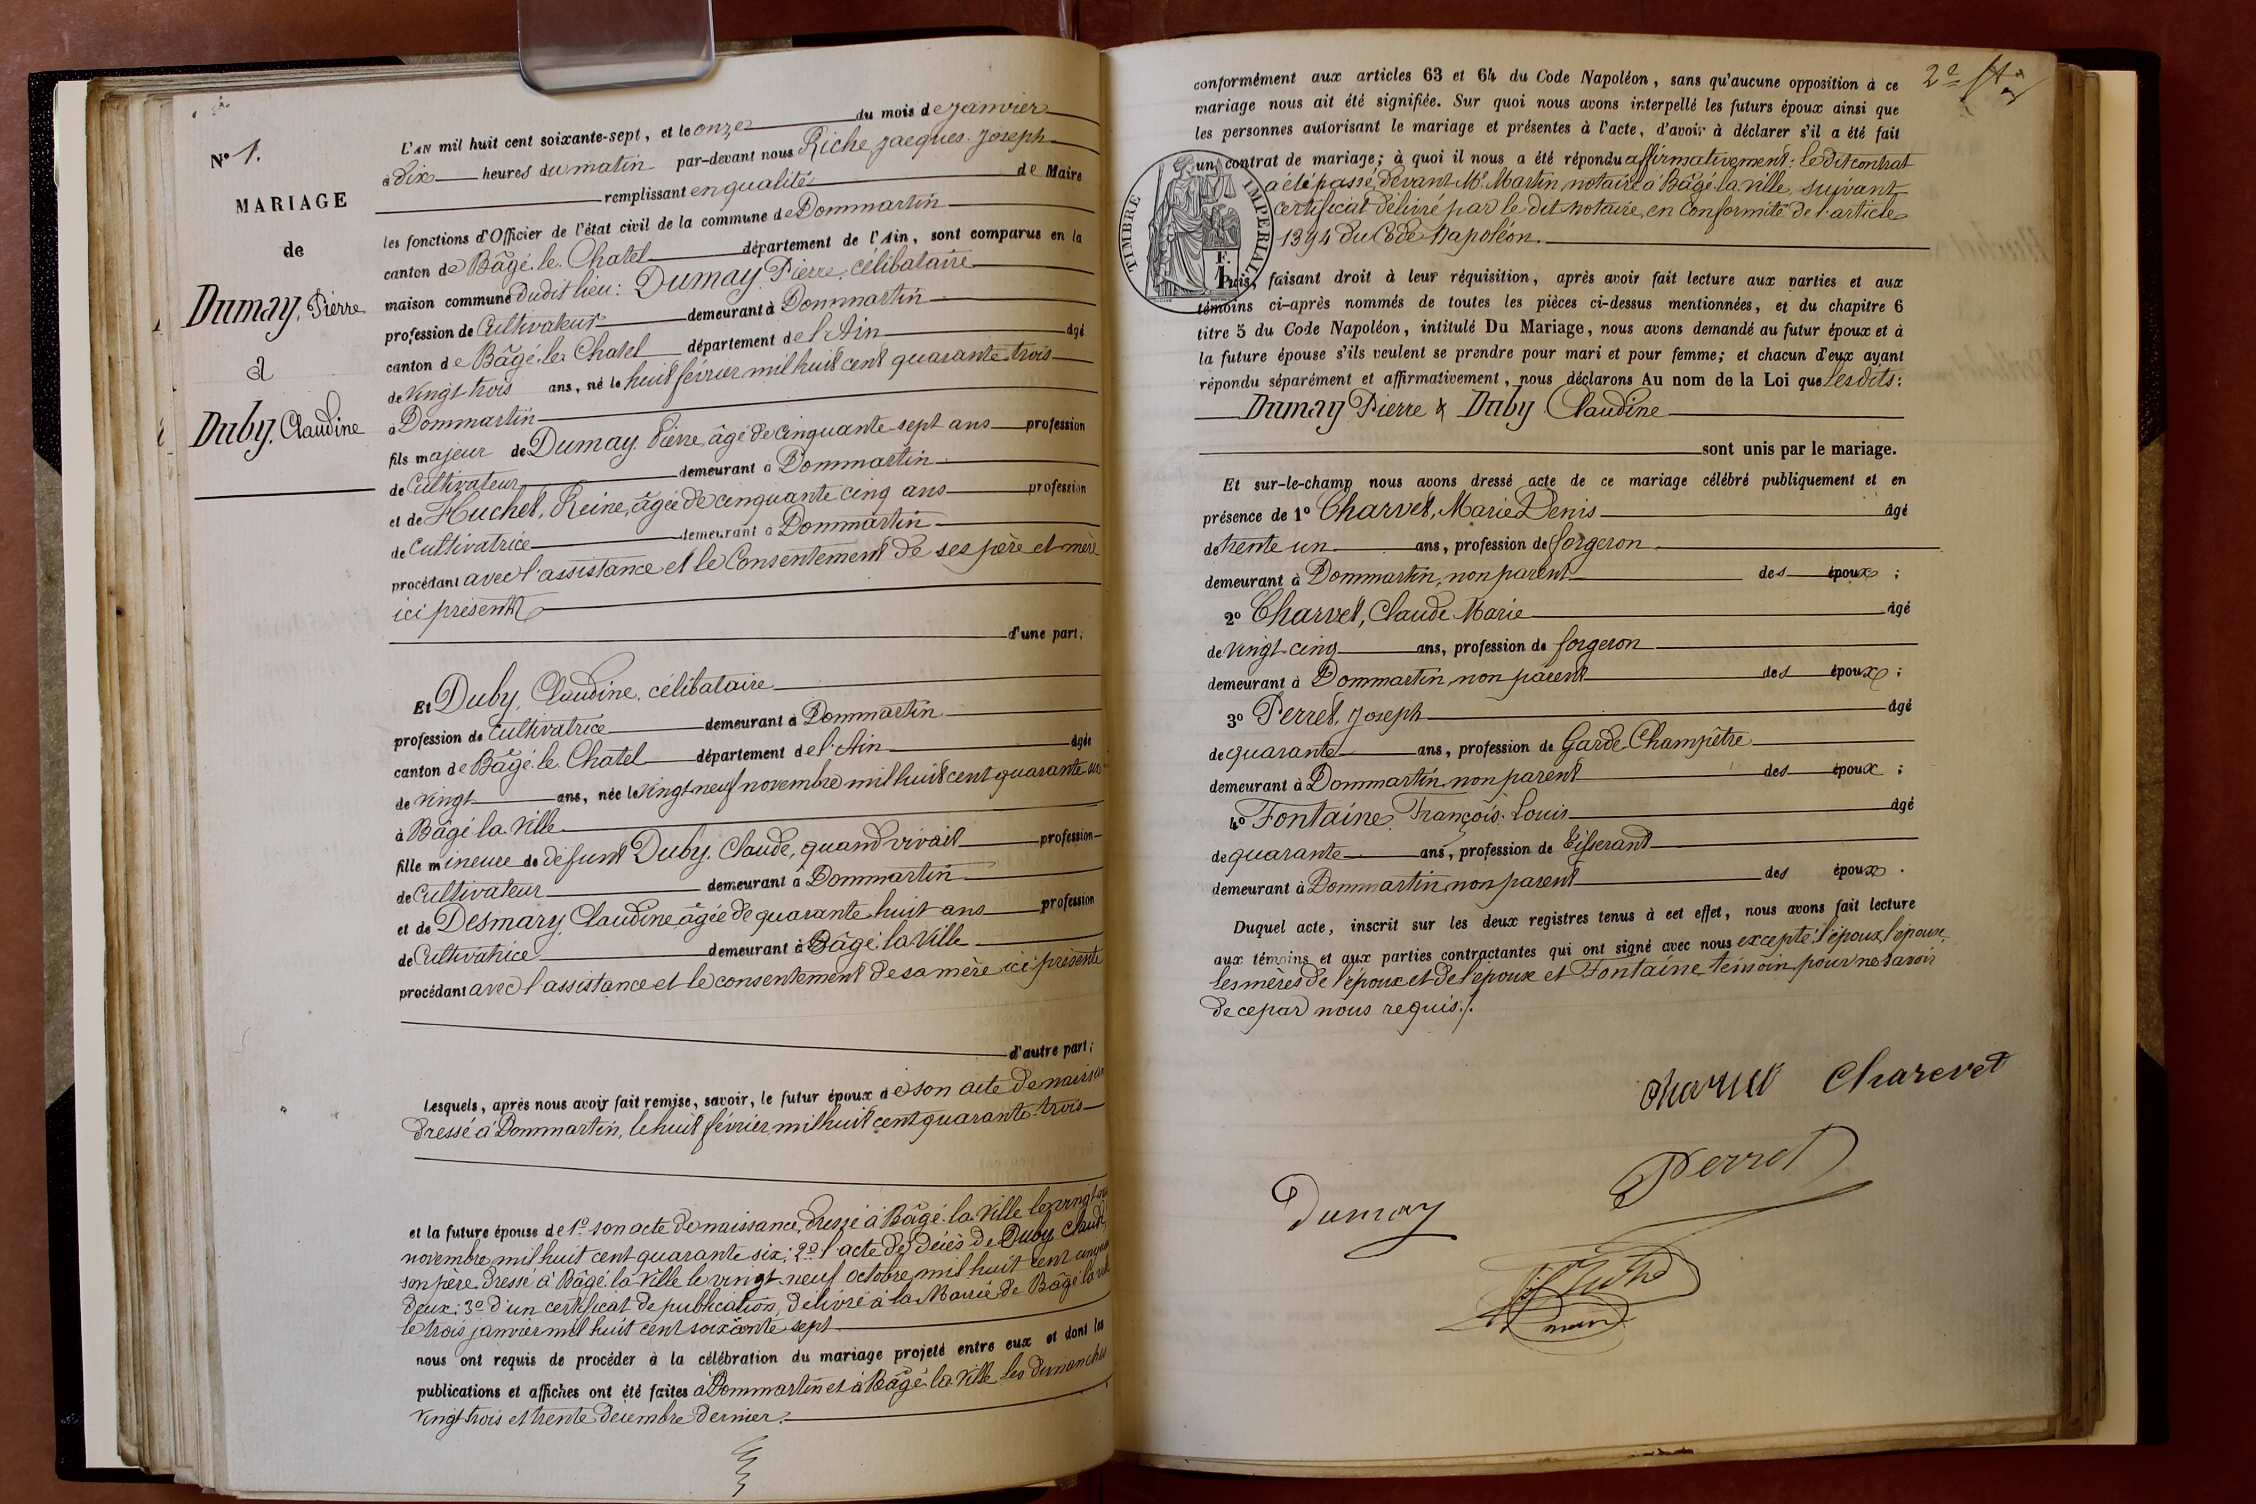 N° 1.
MARIAGE
de
Dumay, Pierre
à
Duby, Claudine
L'AN mil huit cent soixante-sept, et le onze du mois de janvier
à dix heures du matin par-devant nous Riche, Jacques Joseph
remplissant en qualité de Maire
les fonctions d'Officier de l'état civil de la commune de Dommartin
canton de Bâgé-le-Chatel département de l'Ain, sont comparus en la
maison commune dudit lieu: Dumay, Pierre, célibataire
profession de Cultivateur demeurant à Dommartin
canton de Bâgé-le-Chatel département de l'Ain âgé
de vingt trois ans, né le huit février mil huit cent quarante-trois
à Dommartin
fils majeur de Dumay, Pierre, âgé de cinquante-sept ans profession
de Cultivateur demeurant à Dommartin
et de Huchet, Reine, âgée de cinquante cinq ans profession
de Cultivatrice demeurant à Dommartin
procédant avec l'assistance et le Consentement de ses père et mère
ici présents
d'une part;
Et Duby, Claudine, célibataire
profession de Cultivatrice demeurant à Dommartin
canton de Bâgé-le-Chatel département de l'Ain âgée
de vingt ans, née le vingt-neuf novembre mil huit cent quarante six
à Bâgé la Ville
fille mineure de défunt Duby, Claude, quand vivait profession
de Cultivateur demeurant à Dommartin
et de Desmary, Claudine, âgée de quarante huit ans profession
de Cultivatrice demeurant à Bâgé la Ville
procédant avec l'assistance et le consentement de sa mère ici présente
d'autre part;
Lesquels, après nous avoir fait remise, savoir, le futur époux de son acte de naissance
dressé à Dommartin, le huit février mil huit cent quarante-trois
et la future épouse de 1° son acte de naissance, dressé à Bâgé-la-Ville le vingt
novembre mil huit cent quarante six; 2° l'acte de décès de Duby Claude
son père dressé à Bâgé-la-Ville le vingt-neuf octobre mil huit cent cinquante
deux; 3° d'un certificat de publication, délivré à la Mairie de Bâgé la ville
le trois janvier mil huit cent soixante sept
nous ont requis de procéder à la célébration du mariage projeté entre eux et dont les
publications et affiches ont été faites à Dommartin et à Bâgé-la-Ville les dimanches
vingt-trois et trente décembre dernier.
2e
conformément aux articles 63 et 64 du Code Napoléon, sans qu'aucune opposition à ce
mariage nous ait été signifiée. Sur quoi nous avons interpellé les futurs époux ainsi que
les personnes autorisant le mariage et présentes à l'acte, d'avoir à déclarer s'il a été fait
un contrat de mariage; à quoi il nous a été répondu affirmativement: le dit contrat
a été passé, devant Me Martin, notaire à Bâgé-la-Ville, suivant
certificat délivré par le dit notaire, en conformité de l'article
1394 du Code Napoléon.
TIMBRE IMPERIAL
F.
1
Puis, faisant droit à leur réquisition, après avoir fait lecture aux parties et aux
témoins ci-après nommés de toutes les pièces ci-dessus mentionnées, et du chapitre 6
titre 5 du Code Napoléon, intitulé Du Mariage, nous avons demandé au futur époux et à
la future épouse s'ils veulent se prendre pour mari et pour femme; et chacun d'eux ayant
répondu séparément et affirmativement, nous déclarons Au nom de la Loi que lesdits:
Dumay Pierre & Duby Claudine
sont unis par le mariage.
Et sur-le-champ nous avons dressé acte de ce mariage célébré publiquement et en
présence de 1° Charvet, Marie Denis âgé
de trente un ans, profession de forgeron
demeurant à Dommartin, non parent des époux;
2° Charvet, Claude Marie âgé
de vingt-cinq ans, profession de forgeron
demeurant à Dommartin non parent des époux;
3° Perret, Joseph âgé
de quarante ans, profession de Garde-Champêtre
demeurant à Dommartin non parent des époux;
4° Fontaine, François-Louis âgé
de quarante ans, profession de Tisserant
demeurant à Dommartin non parent des époux.
Duquel acte, inscrit sur les deux registres tenus à cet effet, nous avons fait lecture
aux témoins et aux parties contractantes qui ont signé avec nous excepté l'époux, l'épouse,
les mères de l'époux et de l'épouse et Fontaine témoin pour ne savoir
de ce par nous requis.
Charvet Charevet
Perret
Dumay
maire